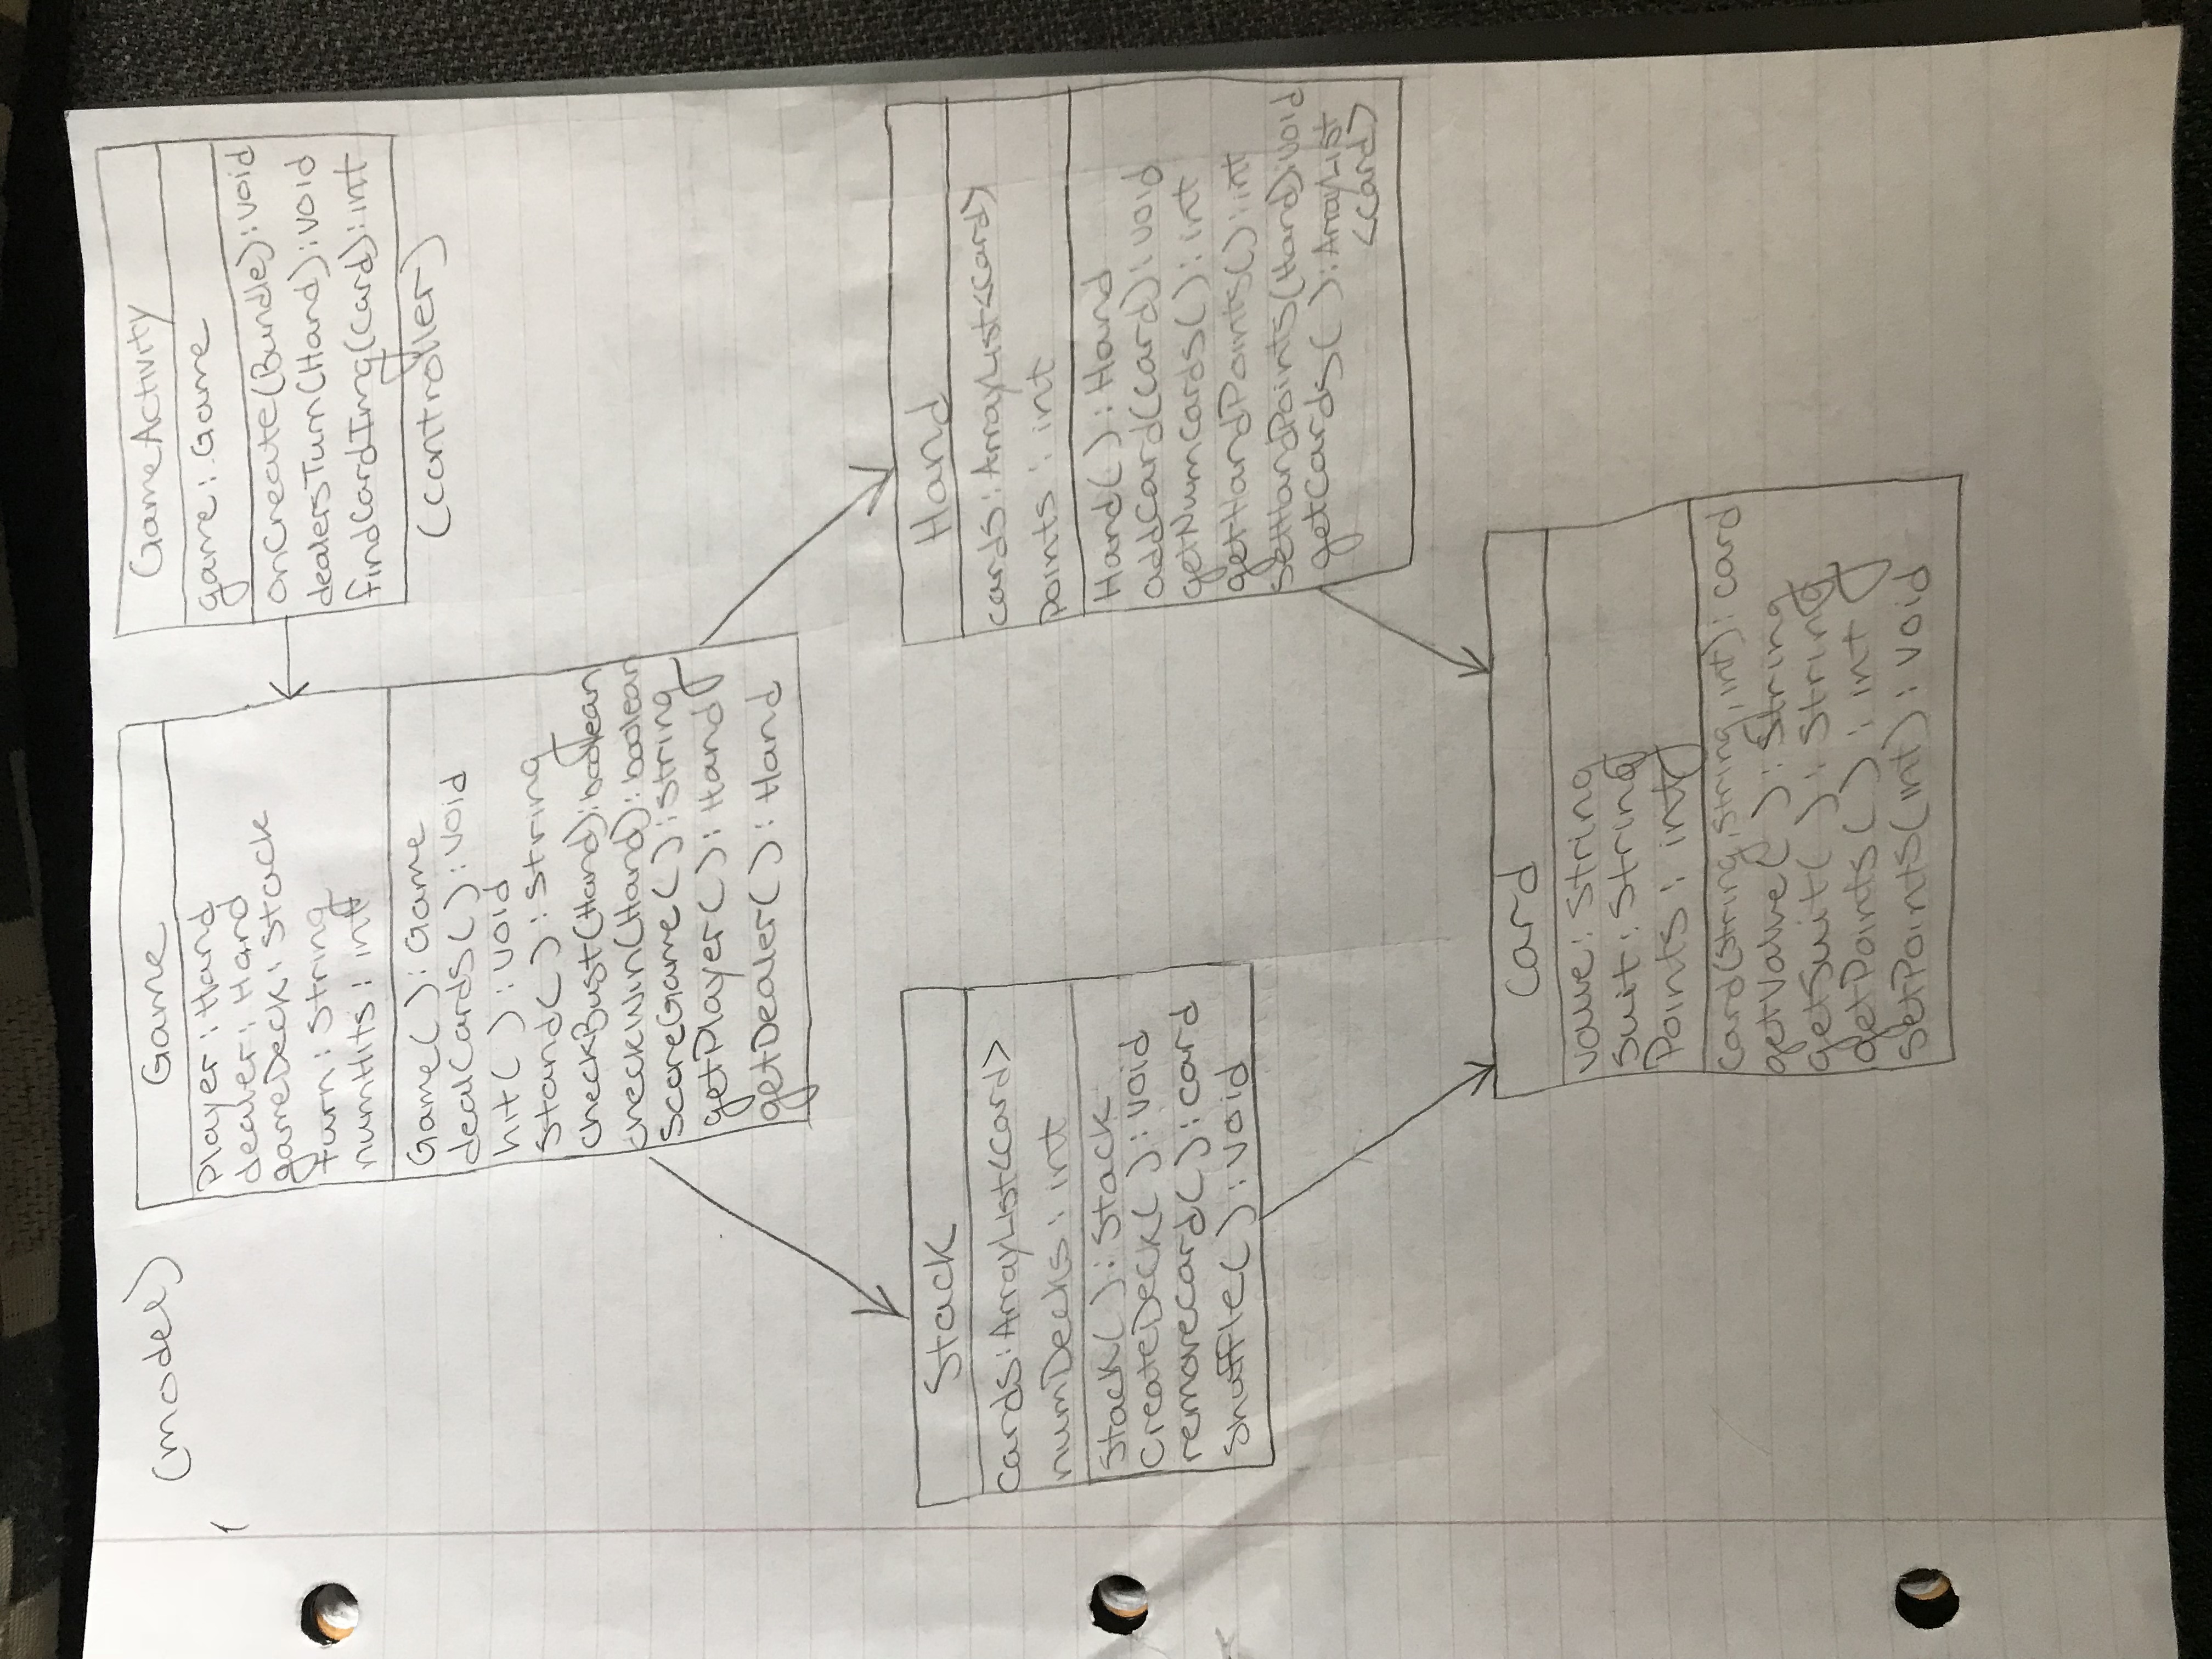 (model)
Game
Player : Hand
dealer : Hand
gameDeck : Stack
turn : String
numHits : int
Game( ) : Game
dealCards( ) : void
hit( ) : void
Stand( ) : String
checkBust(Hand) : boolean
checkWin(Hand) : boolean
ScoreGame( ) : String
getPlayer( ) : Hand
getDealer( ) : Hand
GameActivity
game : Game
onCreate(Bundle) : void
dealersTurn(Hand) : void
findCardImg(Card) : int
(controller)
Stack
cards : ArrayList<Card>
numDecks : int
Stack( ) : Stack
CreateDeck( ) : void
removeCard( ) : Card
Shuffle( ) : void
Hand
cards : ArrayList<Card>
points : int
Hand( ) : Hand
addCard(Card) : void
getNumCards( ) : int
getHandPoints( ) : int
setHandPoints(Hand) : void
getCards( ) : ArrayList
<Card>
Card
value : String
Suit : String
Points : int
Card(String, String, int) : Card
getValue( ) : String
getSuit( ) : String
getPoints( ) : int
setPoints(int) : void